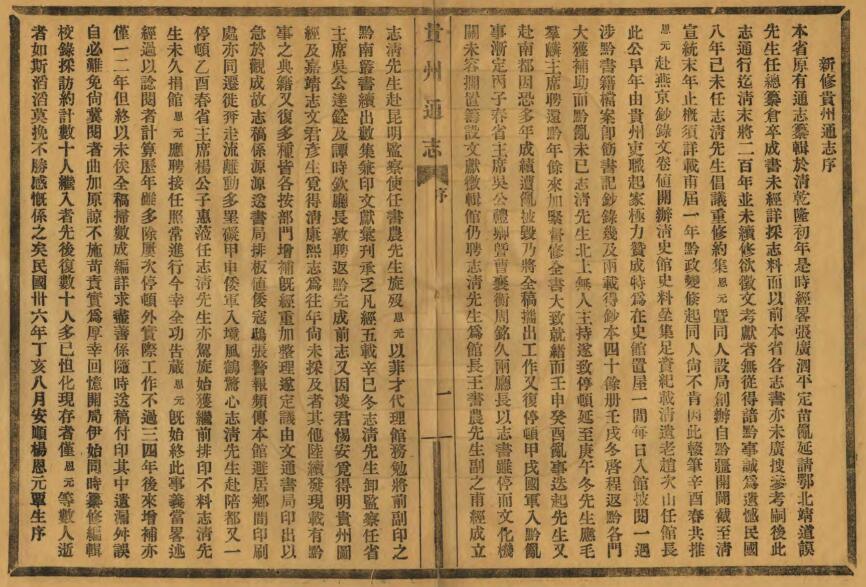 新修貴州通志序
本省原有通志纂輯於清乾隆初年是時經畧張廣泗平定苗亂延請鄂北靖道謨
先生任總纂倉卒成書未經詳採志料而以前本省各志書亦未廣搜參考嗣後此
志通行迄清末將二百年並未續修欲徵文考獻者無從得諳黔事誠爲遺憾民國
八年己未任志清先生倡議重修約集恩元暨同人設局創辦自黔疆開闢截至清
宣統末年止概須詳載甫屆一年黔政變倐起同人尙不肯因此輟筆辛酉春共推
恩元赴燕京鈔錄文卷値開辦清史館史料坌集足資紀載清遺老趙次山任館長
此公早年由貴州吏職起家極力贊成特爲在史館置屋一間每日入館披閱一過
涉黔書籍檔案卽飭書記鈔錄幾及兩載得鈔本四十餘册壬戌冬啓程返黔各門
大獲補助而黔亂未已志清先生北上無人主持遂致停頓延至庚午冬先生應毛
羣麟主席聘還黔年餘來加緊督修全書大致就緒而壬申癸酉亂事迭起先生又
赴南都因恐多年成績遭亂披毀乃將全稿攜出工作又復停頓甲戌國軍入黔亂
事漸定丙子春省主席吳公禮卿曁曹蘘衡周銘久兩廳長以志書雖停而文化機
關未容擱置籌設文獻徵輯館仍聘志清先生爲館長王書農先生副之甫經成立
貴州通志 序 一
志清先生赴昆明監察使任書農先生旋歿恩元以菲才代理館務勉將前副印之
黔南叢書續出數集兼印文獻彙刊承乏凡經五載辛巳冬志清先生卸監察任省
主席吳公達銓及譚時欽廳長敦聘返黔完成前志又因凌君惕安覓得明貴州圖
經及嘉靖志文君彥生覓得清康熙志爲往年尙未採及者其他陸續發現載有黔
事之典籍又復多種皆各按部門增補旣經重加整理遂定議由文通書局印出以
急於觀成故志稿係源源送書局排板値倭寇鴟張警報頻傳本館避居鄉間印刷
處亦同遷徙奔走流離動多罣礙甲申倭軍入境風鶴驚心志清先生赴陪都又一
停頓乙酉春省主席楊公子惠蒞任志清先生亦駕旋始獲繼前排印不料志清先
生未久捐館恩元應聘接任照常進行今幸全功告蕆恩元旣始終此事義當畧述
經過以諗閱者計算歷年雖多除屢次停頓外實際工作不過三四年後來增補亦
僅一二年但終以未俟全稿掃數成編詳求盡善係隨時送稿付印其中遺漏舛誤
自必難免尙冀閱者曲加原諒不施苛責實爲厚幸回憶開局伊始同時纂修編輯
校錄採訪約計數十人繼入者先後復數十人多已怛化現存者僅恩元等數人逝
者如斯滔滔莫挽不勝感慨係之矣民國卅六年丁亥八月安順楊恩元覃生序